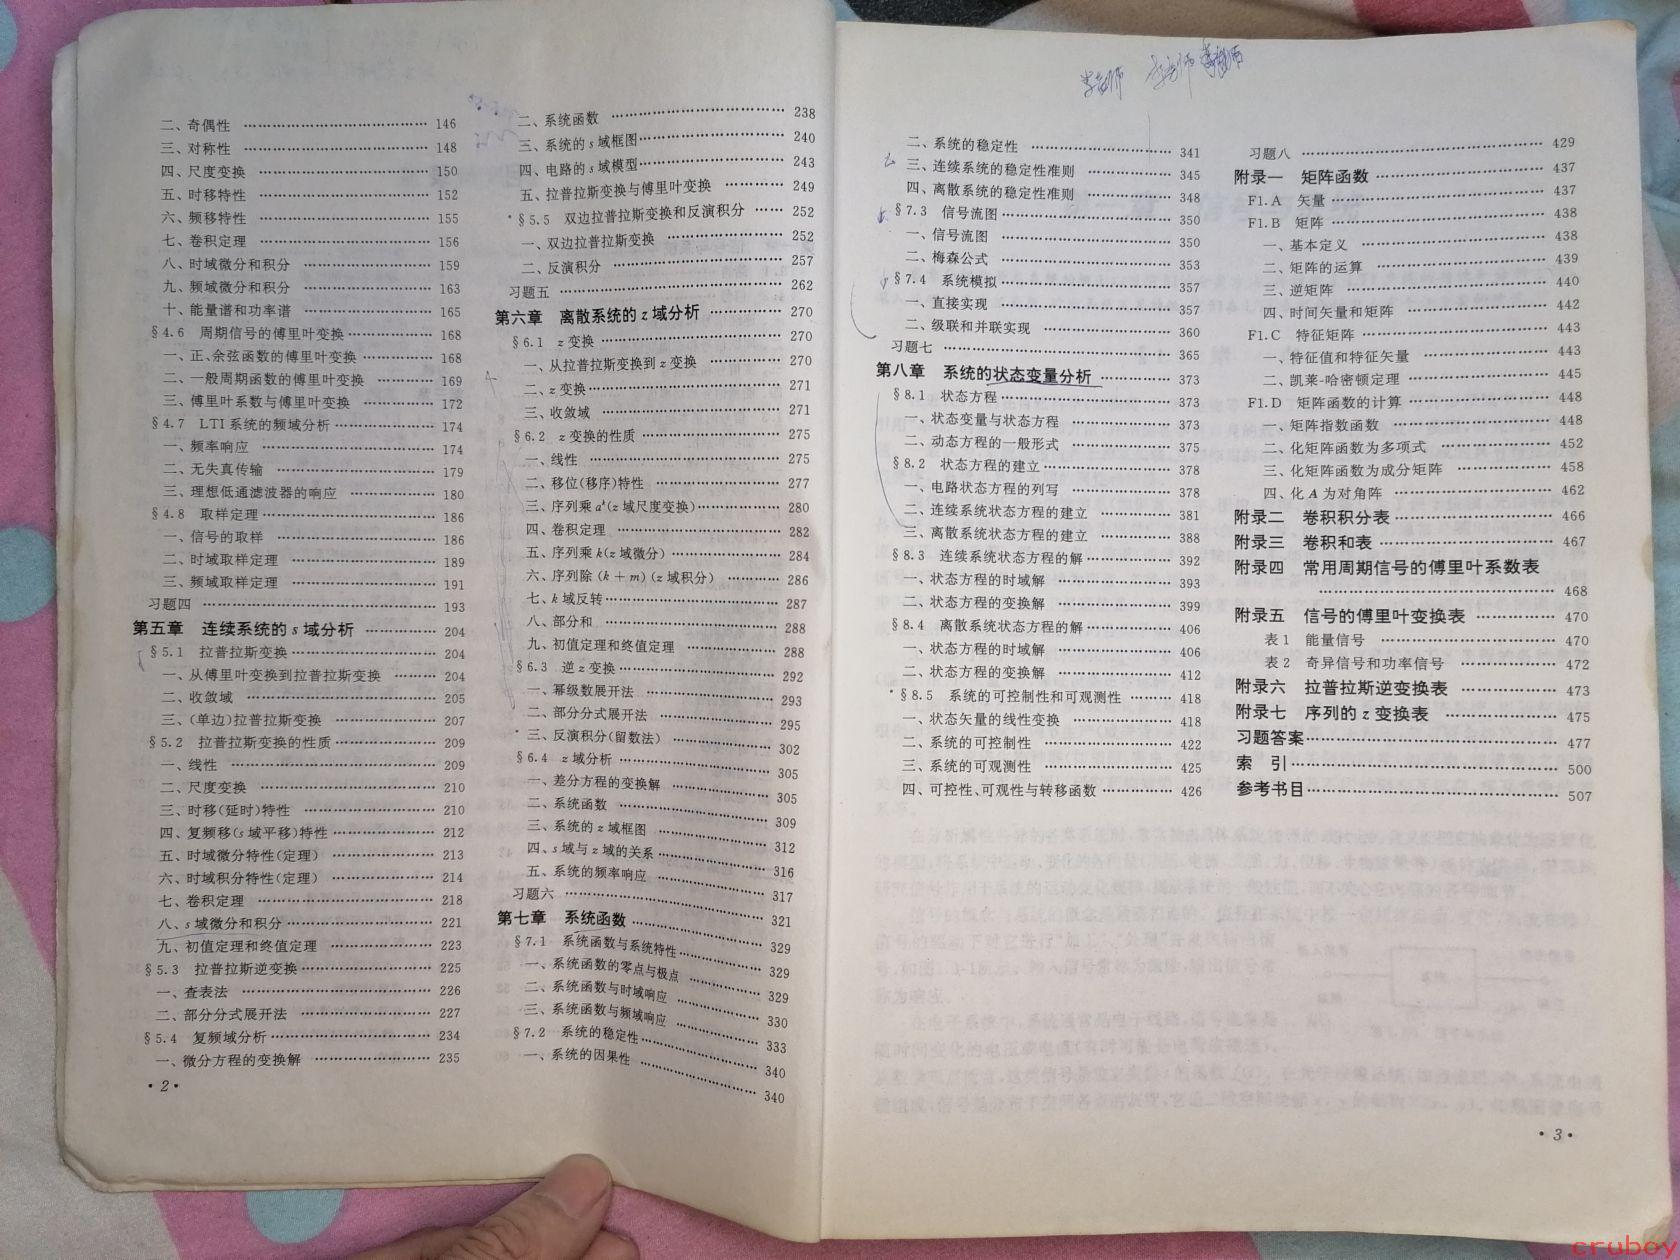 二、奇偶性 …… 146
三、对称性 …… 148
四、尺度变换 …… 150
五、时移特性 …… 152
六、频移特性 …… 155
七、卷积定理 …… 156
八、时域微分和积分 …… 159
九、频域微分和积分 …… 163
十、能量谱和功率谱 …… 165
§4.6 周期信号的傅里叶变换 …… 168
一、正、余弦函数的傅里叶变换 …… 168
二、一般周期函数的傅里叶变换 …… 169
三、傅里叶系数与傅里叶变换 …… 172
§4.7 LTI系统的频域分析 …… 174
一、频率响应 …… 174
二、无失真传输 …… 179
三、理想低通滤波器的响应 …… 180
§4.8 取样定理 …… 186
一、信号的取样 …… 186
二、时域取样定理 …… 189
三、频域取样定理 …… 191
习题四 …… 193
第五章 连续系统的s域分析 …… 204
§5.1 拉普拉斯变换 …… 204
一、从傅里叶变换到拉普拉斯变换 …… 204
二、收敛域 …… 205
三、(单边)拉普拉斯变换 …… 207
§5.2 拉普拉斯变换的性质 …… 209
一、线性 …… 209
二、尺度变换 …… 210
三、时移(延时)特性 …… 210
四、复频移(s域平移)特性 …… 212
五、时域微分特性(定理) …… 213
六、时域积分特性(定理) …… 214
七、卷积定理 …… 218
八、s域微分和积分 …… 221
九、初值定理和终值定理 …… 223
§5.3 拉普拉斯逆变换 …… 225
一、查表法 …… 226
二、部分分式展开法 …… 227
§5.4 复频域分析 …… 234
一、微分方程的变换解 …… 235
·2·
二、系统函数 …… 238
三、系统的s域框图 …… 240
四、电路的s域模型 …… 243
五、拉普拉斯变换与傅里叶变换 …… 249
*§5.5 双边拉普拉斯变换和反演积分 …… 252
一、双边拉普拉斯变换 …… 252
二、反演积分 …… 257
习题五 …… 262
第六章 离散系统的z域分析 …… 270
§6.1 z变换 …… 270
一、从拉普拉斯变换到z变换 …… 270
二、z变换 …… 271
三、收敛域 …… 271
§6.2 z变换的性质 …… 275
一、线性 …… 275
二、移位(移序)特性 …… 277
三、序列乘aᵏ(z域尺度变换) …… 280
四、卷积定理 …… 282
五、序列乘k(z域微分) …… 284
六、序列除(k+m)(z域积分) …… 286
七、k域反转 …… 287
八、部分和 …… 288
九、初值定理和终值定理 …… 288
§6.3 逆z变换 …… 292
一、幂级数展开法 …… 293
二、部分分式展开法 …… 295
*三、反演积分(留数法) …… 302
§6.4 z域分析 …… 305
一、差分方程的变换解 …… 305
二、系统函数 …… 309
三、系统的z域框图 …… 312
四、s域与z域的关系 …… 316
五、系统的频率响应 …… 317
习题六 …… 321
第七章 系统函数 …… 329
§7.1 系统函数与系统特性 …… 329
一、系统函数的零点与极点 …… 329
二、系统函数与时域响应 …… 330
三、系统函数与频域响应 …… 333
§7.2 系统的稳定性 …… 340
一、系统的因果性 …… 340
二、系统的稳定性 …… 341
三、连续系统的稳定性准则 …… 345
四、离散系统的稳定性准则 …… 348
§7.3 信号流图 …… 350
一、信号流图 …… 350
二、梅森公式 …… 353
§7.4 系统模拟 …… 357
一、直接实现 …… 357
二、级联和并联实现 …… 360
习题七 …… 365
第八章 系统的状态变量分析 …… 373
§8.1 状态方程 …… 373
一、状态变量与状态方程 …… 373
二、动态方程的一般形式 …… 375
§8.2 状态方程的建立 …… 378
一、电路状态方程的列写 …… 378
二、连续系统状态方程的建立 …… 381
三、离散系统状态方程的建立 …… 388
§8.3 连续系统状态方程的解 …… 392
一、状态方程的时域解 …… 393
二、状态方程的变换解 …… 399
§8.4 离散系统状态方程的解 …… 406
一、状态方程的时域解 …… 406
二、状态方程的变换解 …… 412
*§8.5 系统的可控制性和可观测性 …… 418
一、状态矢量的线性变换 …… 418
二、系统的可控制性 …… 422
三、系统的可观测性 …… 425
四、可控性、可观性与转移函数 …… 426
习题八 …… 429
附录一 矩阵函数 …… 437
F1.A 矢量 …… 437
F1.B 矩阵 …… 438
一、基本定义 …… 438
二、矩阵的运算 …… 439
三、逆矩阵 …… 440
四、时间矢量和矩阵 …… 442
F1.C 特征矩阵 …… 443
一、特征值和特征矢量 …… 443
二、凯莱-哈密顿定理 …… 445
F1.D 矩阵函数的计算 …… 448
一、矩阵指数函数 …… 448
二、化矩阵函数为多项式 …… 452
三、化矩阵函数为成分矩阵 …… 458
四、化A为对角阵 …… 462
附录二 卷积积分表 …… 466
附录三 卷积和表 …… 467
附录四 常用周期信号的傅里叶系数表
…… 468
附录五 信号的傅里叶变换表 …… 470
表1 能量信号 …… 470
表2 奇异信号和功率信号 …… 472
附录六 拉普拉斯逆变换表 …… 473
附录七 序列的z变换表 …… 475
习题答案 …… 477
索 引 …… 500
参考书目 …… 507
·3·
cruboy